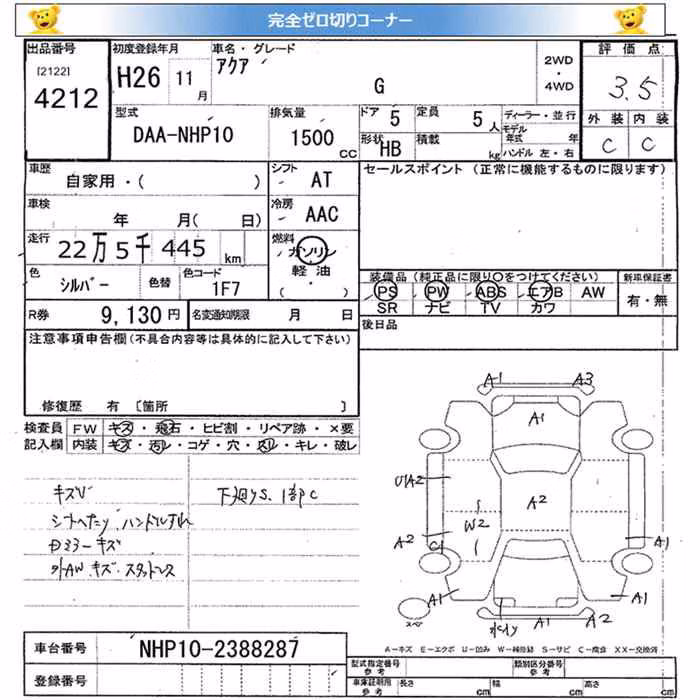 完全ゼロ切りコーナー
出品番号 初度登録年月 車名・グレード 2WD 評価点
[2122] アクア ・
4212 H26 11月 G 4WD 3.5
型式 排気量 ドア 5 定員 5人 ディーラー・並行 外装 内装
DAA-NHP10 1500cc 形状 HB 積載 kg モデル年式 年 C C
ハンドル 左・右
車歴 シフト セールスポイント (正常に機能するものに限ります)
自家用・( ) AT
車検 冷房
年 月( 日) AAC
走行 燃料
22万5千445km ガソリン
色 色替 色コード 軽油
シルバー 1F7 (・)
装備品(純正品に限り○をつけてください) 新車保証書
PS PW ABS エアB AW 有・無
SR ナビ TV カワ
R券 9,130円 名変通知期限 月 日 後日品
注意事項申告欄(不具合内容等は具体的に記入して下さい)
修復歴 有 〔箇所 〕
検査員 FW キズ・飛石・ヒビ割・リペア跡・×要
記入欄 内装 キズ・汚レ・コゲ・穴・スレ・キレ・破レ
キズV 下廻りS、1部C
シートへたり、ハンドルすれ
外AW キズ スタットレス
A1 A3
A1
U1A2 A2
W2
A2 C1 A1
A1 A1
A1 A2
A-キズ E-エクボ U-凹み W-補修跡 S-サビ C-腐食 XX-交換済
車台番号 NHP10-2388287
登録番号
型式指定番号 参考 類別区分番号 参考
車庫証明用 参考 長さ cm 幅 cm 高さ cm